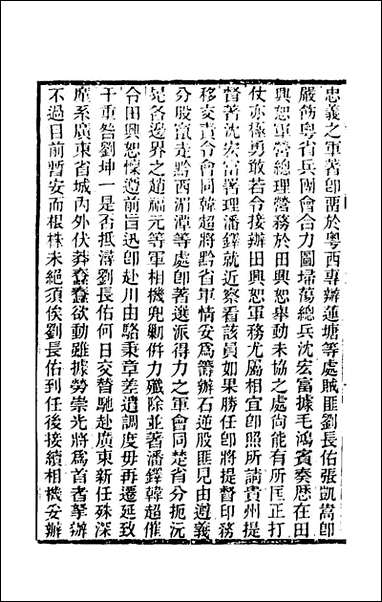 忠義之軍著卽西於粵西專辦蓮塘等處賊匪劉長佑張凱嵩卽
嚴飭粵省兵團會合力圖埽蕩總兵沈宏富據毛鴻賓奏歷在田
興恕軍營總理營務於田興恕舉動未協之處尚能有所匡正打
仗亦極勇敢若令接辦田興恕軍務尤屬相宜卽照所請貴州提
督著沈宏富署理潘鐸就近察看該員如果勝任卽將提督印務
移交責令會同韓超將黔省軍情妥爲籌辦石逆股匪見由遵義
分股竄走黔西湄潭等處卽著選派得力之軍會同楚省分扼沅
晃各邊界之趙福元等軍相機兜勦倂力殲除並著潘鐸韓超催
令田興恕懍遵前旨迅卽赴川由駱秉章差遣調度毋再遷延致
干重咎劉坤一是否抵潯劉長佑何日交替馳赴廣東新任殊深
廑系廣東省城內外伏莽蠢蠢欲動雖據勞崇光將爲首者拏辦
不過目前暫安而根株未絕須俟劉長佑到任後接續相機妥辦